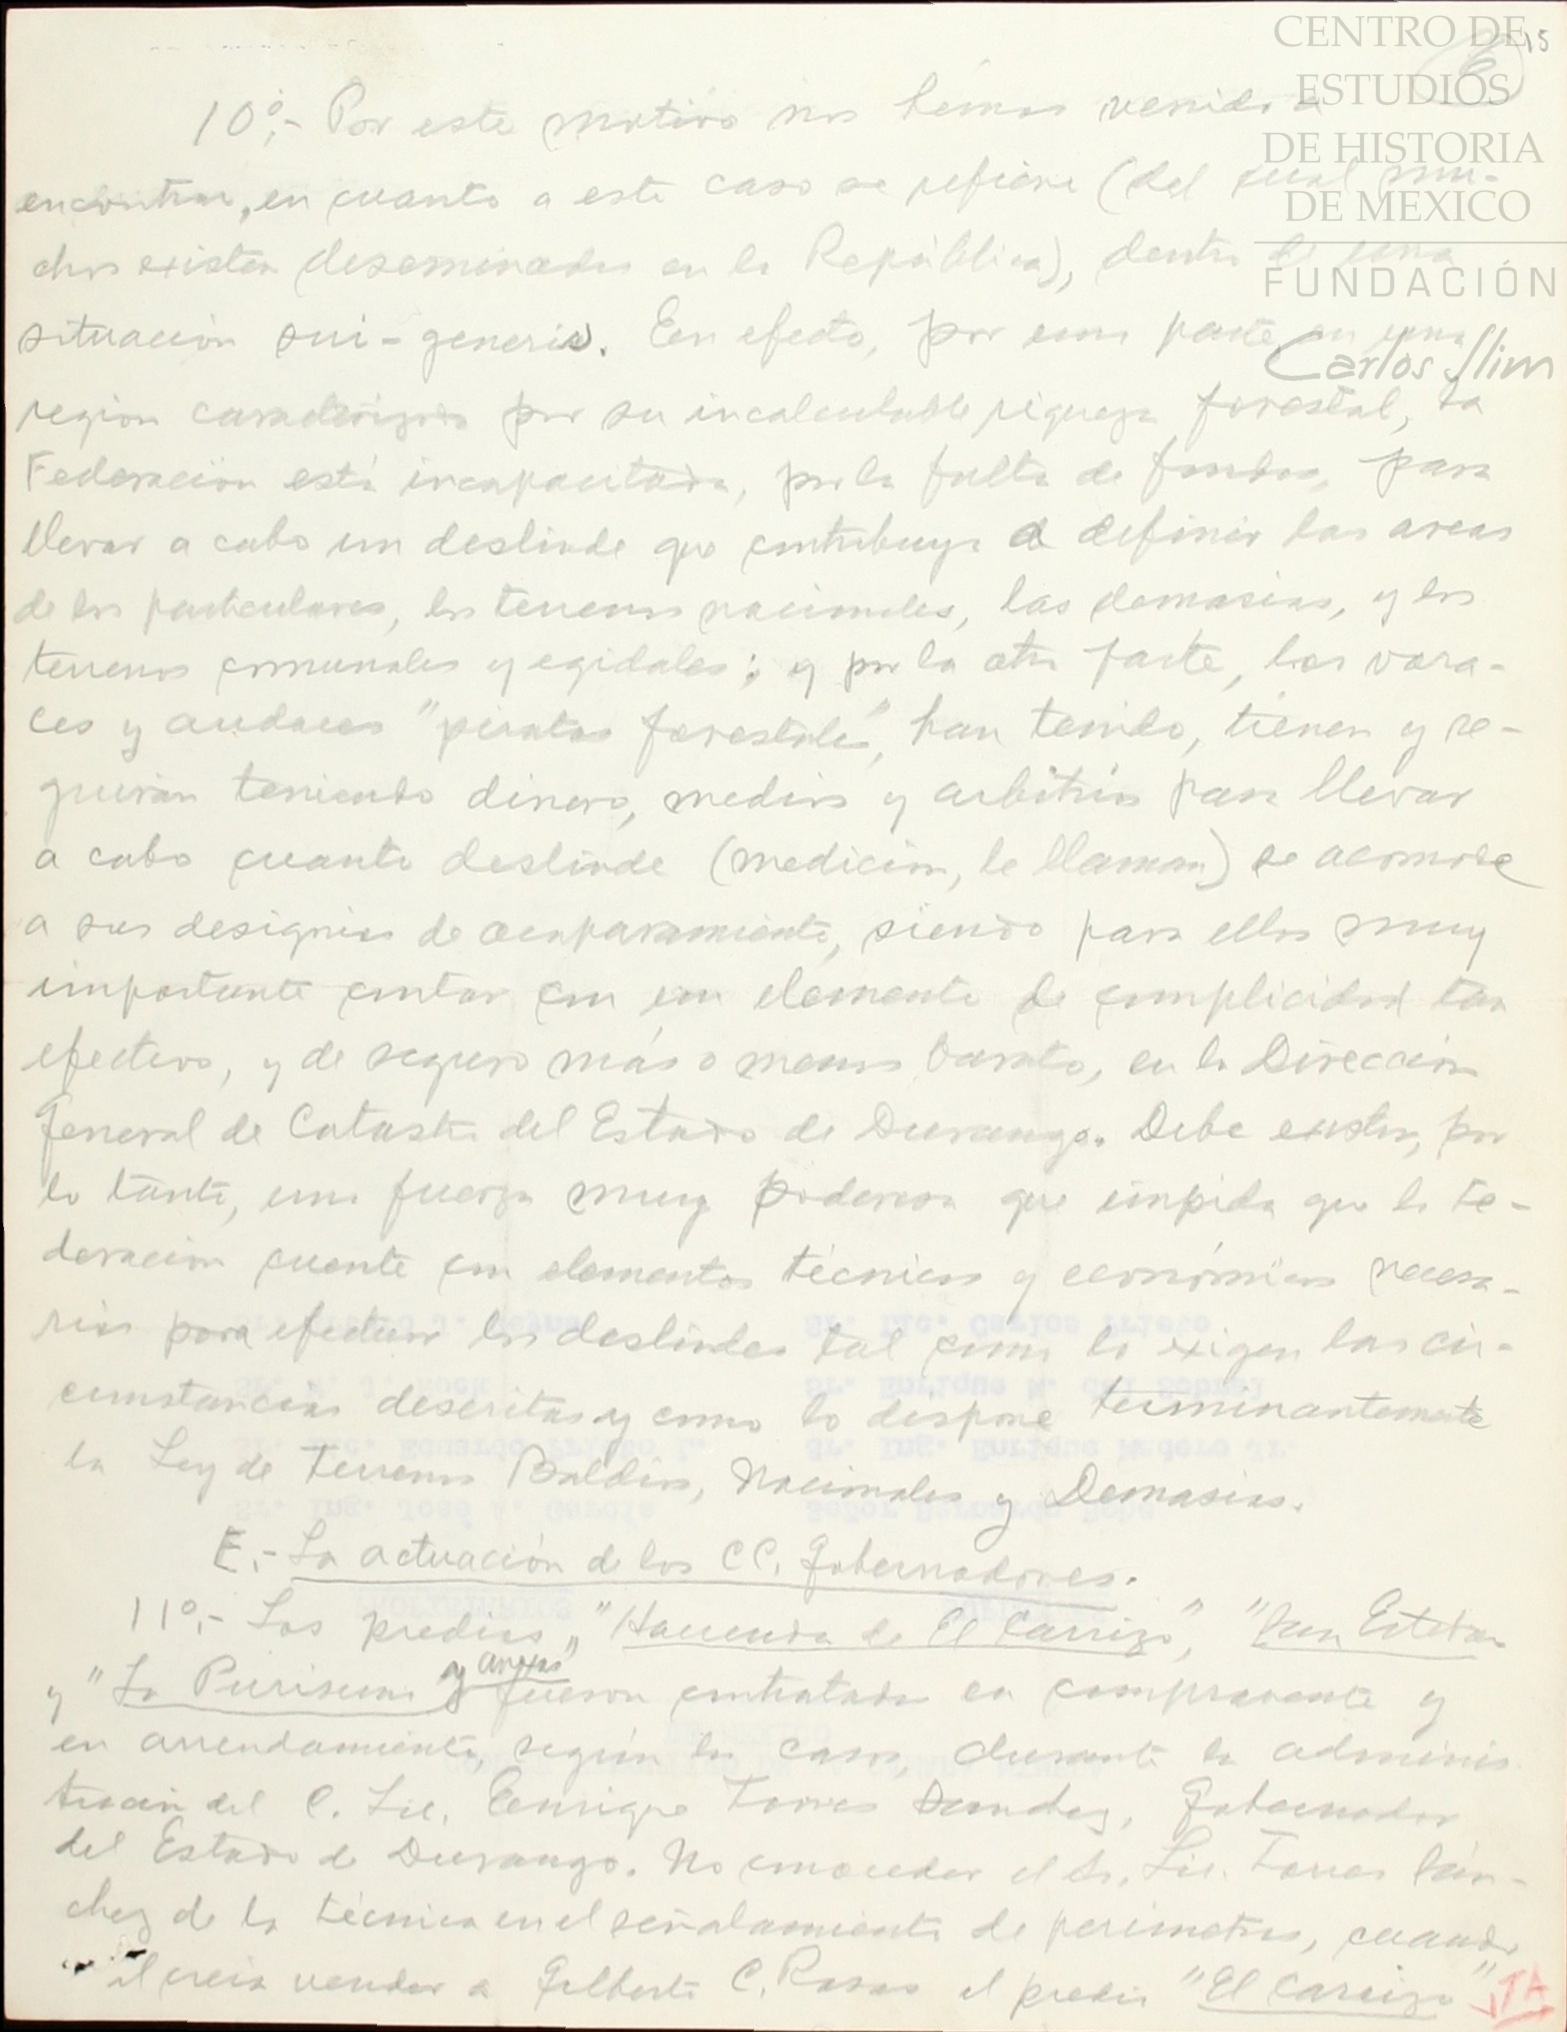 CENTRO DE
ESTUDIOS
DE HISTORIA
DE MEXICO
FUNDACIÓN
Carlos Slim
15
6
10º,- Por este motivo nos hemos venido a
encontrar, en cuanto a este caso se refiere (del cual mu-
chos existen diseminados en la República), dentro de una
situación sui-generis. En efecto, por una parte en una
región caracterizada por su incalculable riqueza forestal, la
Federación está incapacitada, por la falta de fondos, para
llevar a cabo un deslinde que contribuya a definir las areas
de los particulares, los terrenos nacionales, las demasias, y los
terrenos comunales y egidales; y por la otra parte, los vora-
ces y audaces "piratas forestales", han tenido, tienen y se-
guirán teniendo dinero, medios y arbitrios para llevar
a cabo cuanto deslinde (medición, le llaman) se acomode
a sus designios de acaparamiento, siendo para ellos muy
importante contar con un elemento de complicidad tan
efectivo, y de seguro más o menos barato, en la Dirección
General de Catastro del Estado de Durango. Debe existir, por
lo tanto, una fuerza muy poderosa que impida que la Fe-
deración cuente con elementos técnicos y económicos necesa-
rios para efectuar los deslindes tal como lo exigen las cir-
cunstancias descritas y como lo dispone terminantemente
la Ley de Terrenos Baldíos, Nacionales y Demasias.
E.- La actuación de los CC. Gobernadores.
11º,- Los predios "Hacienda de El Carrizo", "San Esteban
y "La Purisima y anexas" fueron contratados en compraventa y
en arrendamiento, según los casos, durante la adminis
tración del C. Lic. Enrique Torres Sanchez, Gobernador
del Estado de Durango. No conocedor el Sr. Lic. Torres Sán-
chez de la técnica en el señalamiento de perímetros, cuando
él creía vender a Gilberto C. Rosas el predio "El Carrizo"